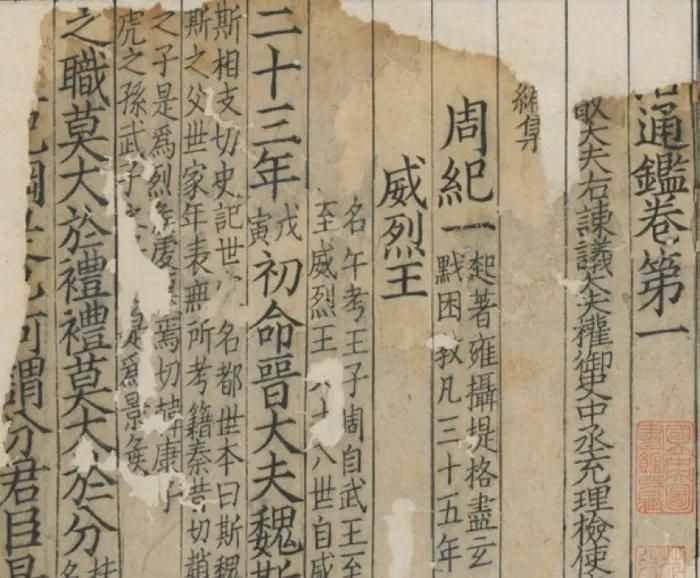 通鑑卷第一
大夫右諫議大夫權御史中丞充理檢使
編集
周紀一
起著雍攝提格盡玄
黓困敦凡三十五年
威烈王
名午考王子周自武王至
至威烈王 十八世自威
二十三年戊寅初命晉大夫魏斯
斯相支切史記世 名都世本曰斯魏
斯之父世家年表無所考籍秦昔切趙
之子是爲烈侯虔 焉切韓康子
虎之孫武子 是爲景侯
之職莫大於禮禮莫大於分
扶
名
綱 何謂分君臣是